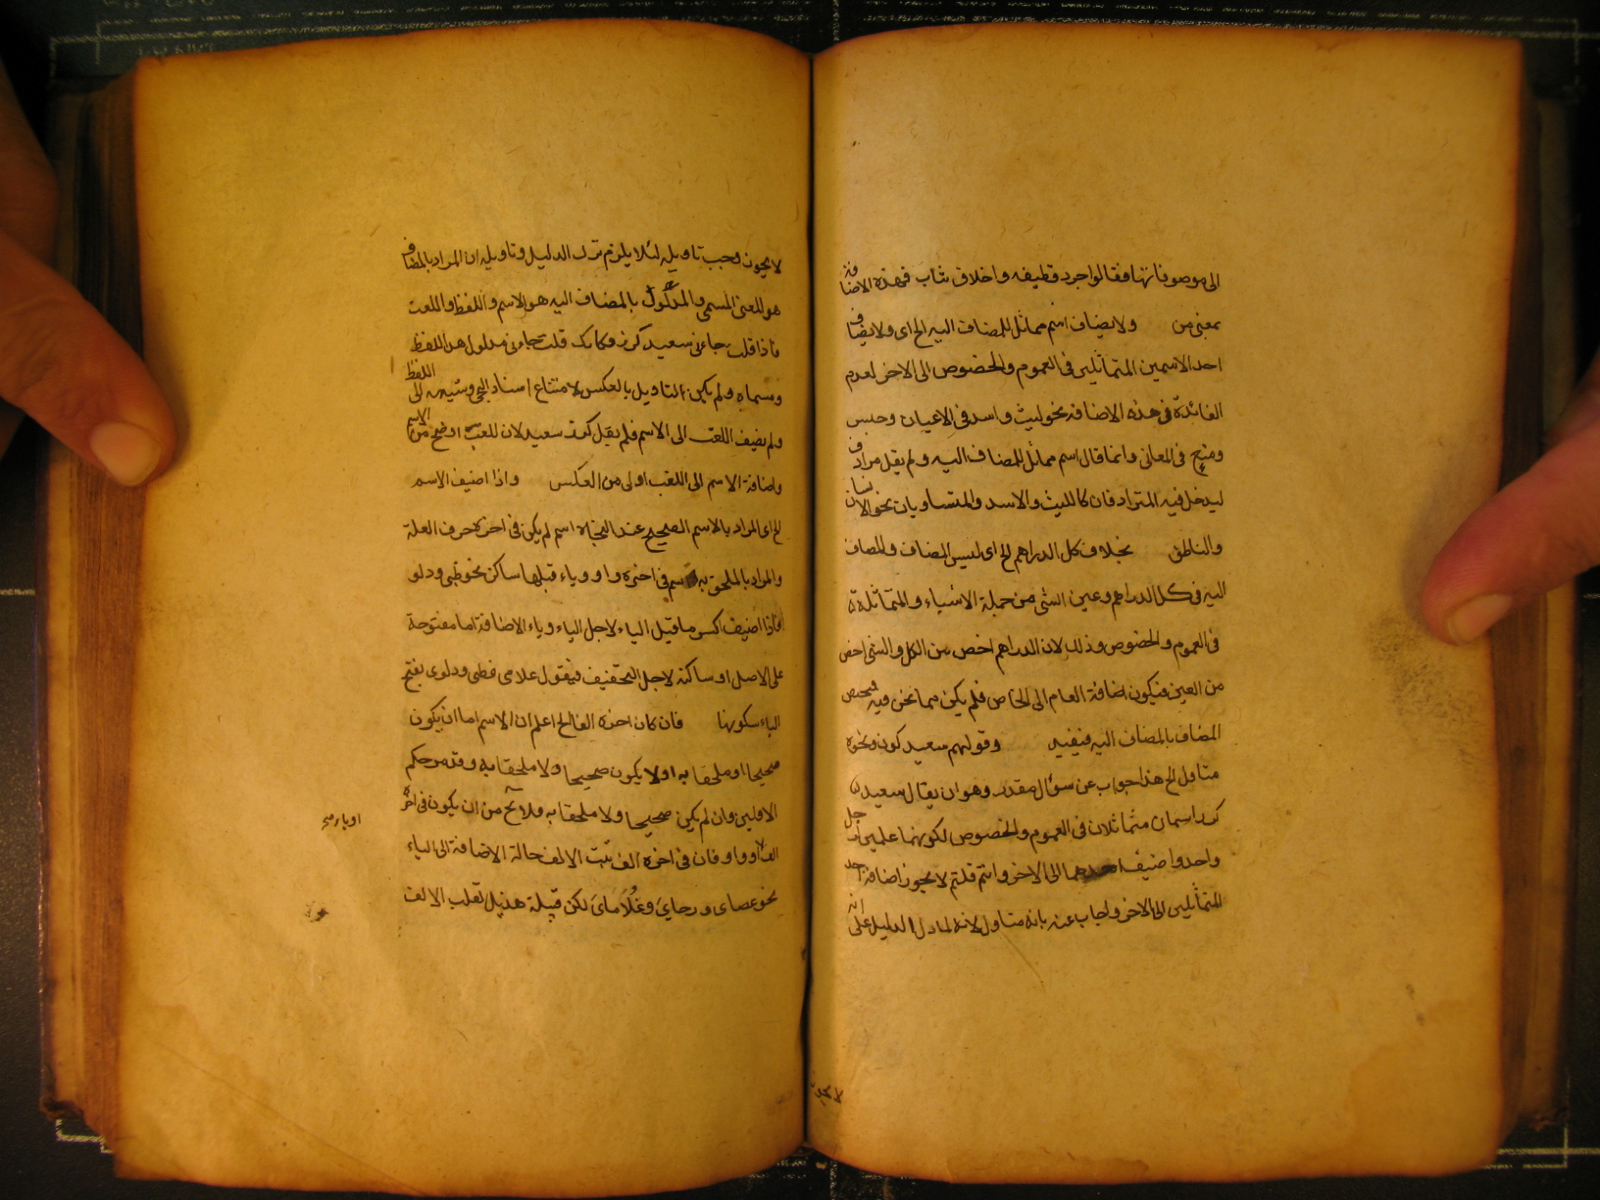 الى موصوفاتها فقالوا جرد قطيفه واخلاق ثياب فهذه الاضافة
بمعنى من ولا يضاف اسم مماثل للمضاف اليه الخ اى ولا يضاف
احد الاسمين المتماثلين فى العموم والخصوص الى الاخر لعدم
الفائدة فى هذه الاضافة نحو ليث واسد فى الاعيان وحبس
ومنع فى المعانى وانما قال اسم مماثل للمضاف اليه ولم يقل مرادف
ليدخل فيه المترادفان كالليث والاسد والمتساويان نحو الانسان
والناطق بخلاف كل الدراهم الخ اى ليس المضاف والمضاف
اليه فى كل الدراهم وعين الشئ من جملة الاشياء والمتماثلة
فى العموم والخصوص وذلك لان الدراهم اخص من الكل والشئ اخص
من العين فيكون اضافة العام الى الخاص فلم يكن مما نحن فيه
المضاف بالمضاف اليه فيفيد وقولهم سعيد كرز ونحوه
متاول الخ هذا جواب عن سؤال مقدر وهو ان يقال سعيد
كرز اسمان متماثلان فى العموم والخصوص لكونهما علمين رجل
واحد واضيف احدهما الى الاخر وانتم قلتم لا يجوز اضافة احد
المتماثلين الى الاخر واجاب عنه بانه متاول لانه لما دل الدليل على انه
لا يجوز
لا يجوز وجب تاويله لئلا يلزم ترك الدليل وتاويله ان المراد بالمضاف
هو المعنى المسمى والمدلول بالمضاف اليه هو الاسم واللفظ واللقب
فاذا قلت جاءنى سعيد كرز فكانك قلت جاءنى مدلول هذا اللفظ
ومسماه ولم يكن التاويل بالعكس لامتناع اسناد المجئ وشبهه الى اللفظ
ولم يضيف اللقب الى الاسم فلم يقل كرز سعيد لان اللقب اوضح من الاسم
واضافة الاسم الى اللقب اولى من العكس واذا اضيف الاسم
الخ اى المراد بالاسم الصحيح عند النحاة اسم لم يكن فى اخره حرف العلة
والمراد بالملحق به اسم فى اخره واو وياء قبلها ساكن نحو ظبى ودلو
فاذا اضيف اكسر ما قبل الياء لاجل الياء وياء الاضافة اما مفتوحة
على الاصل او ساكنة لاجل التخفيف فيقول غلامى وظبى ودلوى بفتح
الياء سكونها فان كان اخره الفا الخ اعلم ان الاسم اما ان يكون
صحيحا او ملحقا به اولا يكون صحيحا ولا ملحقا به وقد مر حكم
الاولين وان لم يكن صحيحا ولا ملحقا به فلا يخ من ان يكون فى اخره
او ياء صح
الفا او واو فان فى اخره الف ثبت الالف حالة الاضافة الى الياء
نحو عصاى ورحاى وغلاماى لكن قبيلة هذيل تقلب الالف